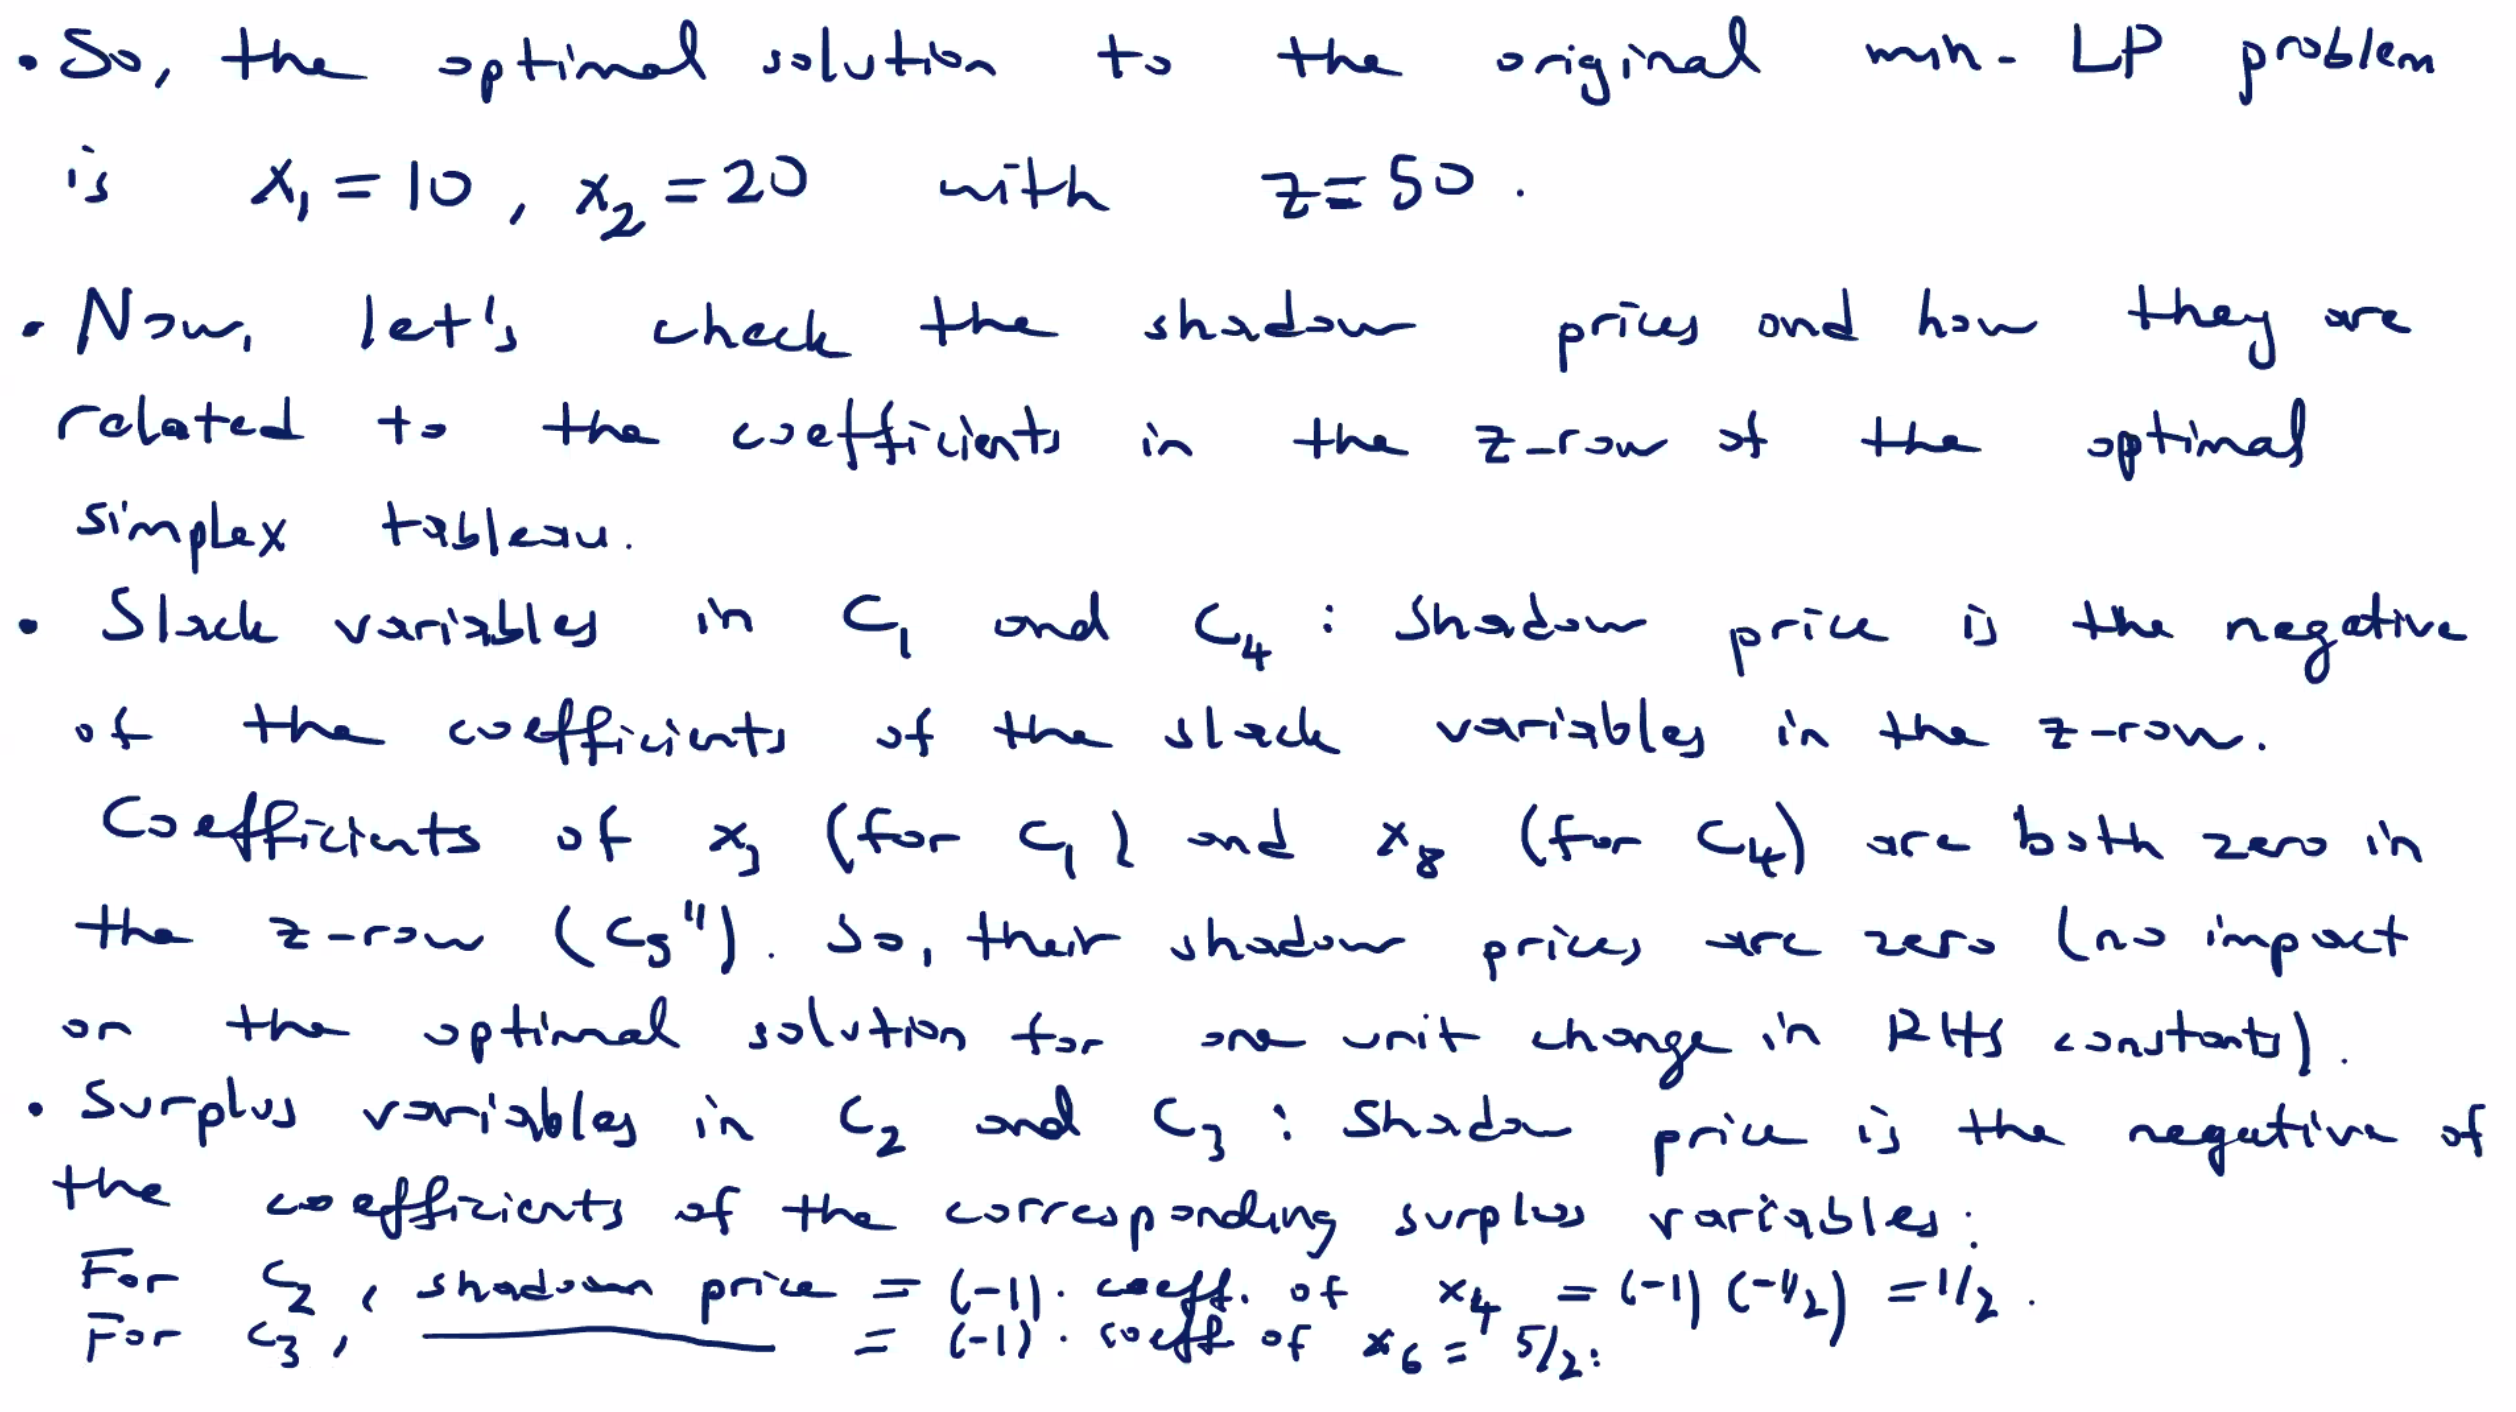 • So, the optimal solution to the original min- LP problem
is x₁ = 10, x₂ = 20 with z = 50.
• Now, let's check the shadow prices and how they are
related to the coefficients in the z-row of the optimal
simplex tableau.
• Slack variables in C₁ and C₄ : Shadow price is the negative
of the coefficients of the slack variables in the z-row.
Coefficients of x₃ (for C₁) and x₈ (for C₄) are both zero in
the z-row (C5"). So, their shadow prices are zero (no impact
on the optimal solution for one unit change in RHS constants).
• Surplus variables in C₂ and C₃ : Shadow price is the negative of
the coefficients of the corresponding surplus variables:
For C₂, shadown price = (-1). coeff. of x₄ = (-1)(-1/2) = 1/2.
For C₃, ———— = (-1). coeff of x₆ = 5/2.